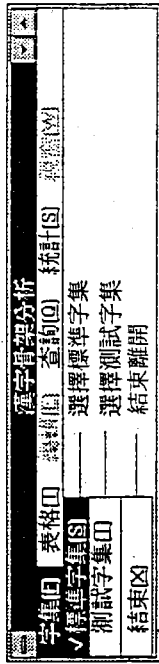 漢字骨架分析
字集(F) 表格(T) 查詢(Q) 統計(S) 視窗(W)
✓標準字集(S) 選擇標準字集
測試字集(T) 選擇測試字集
結束(X) 結束離開